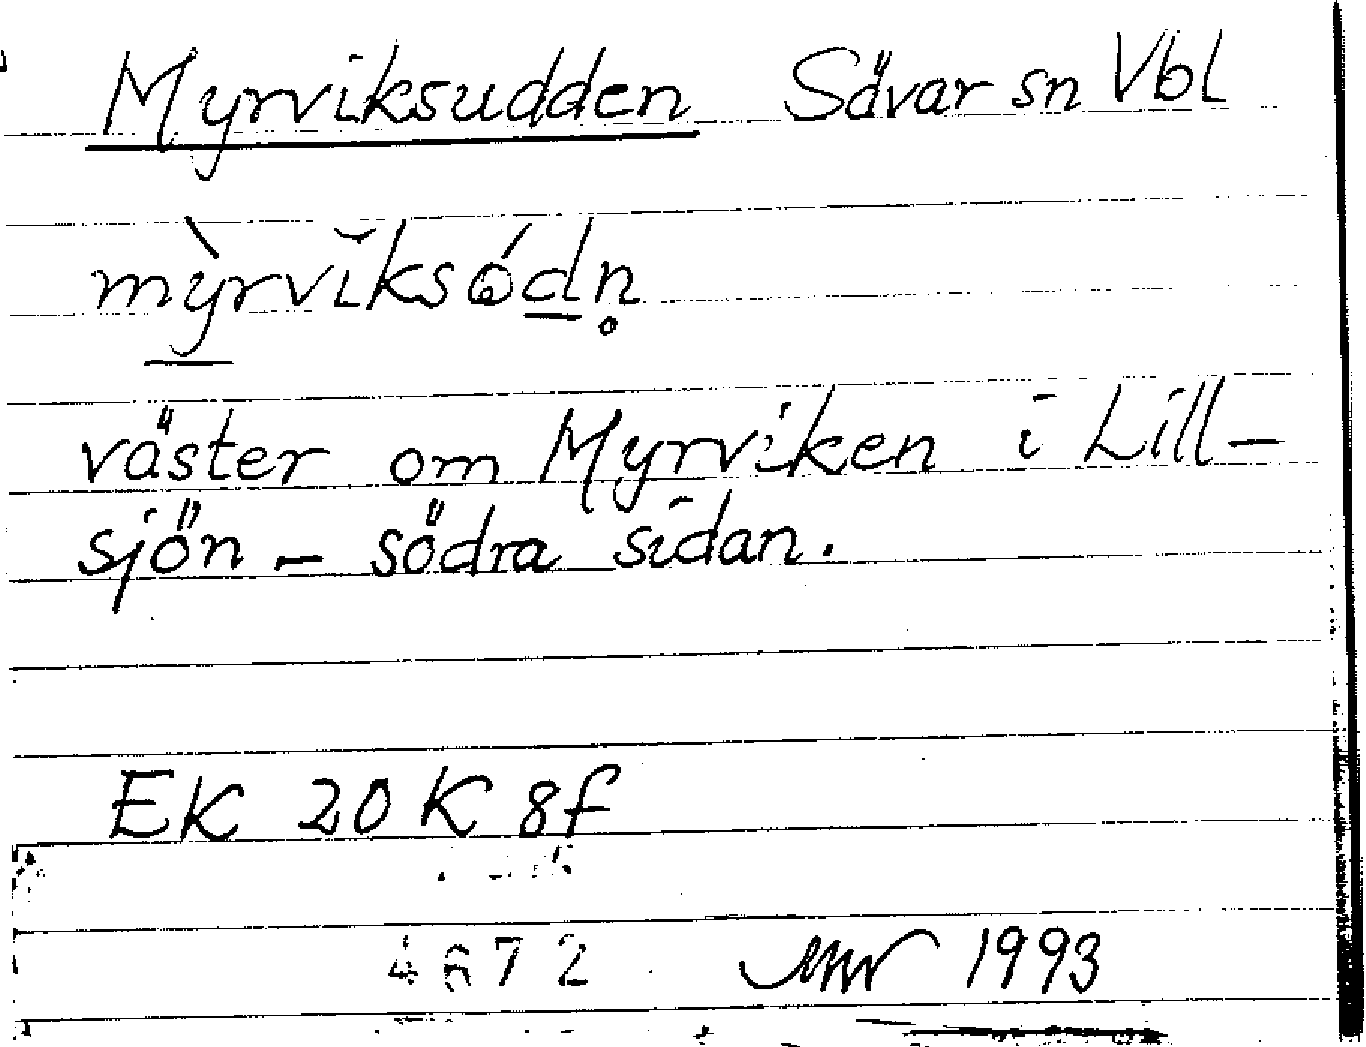 Myrviksudden Sävar sn Vbl
mỳrvĭksódn̥
väster om Myrviken i Lill-
sjön - södra sidan.
EK 20 K 8f
4672 1993